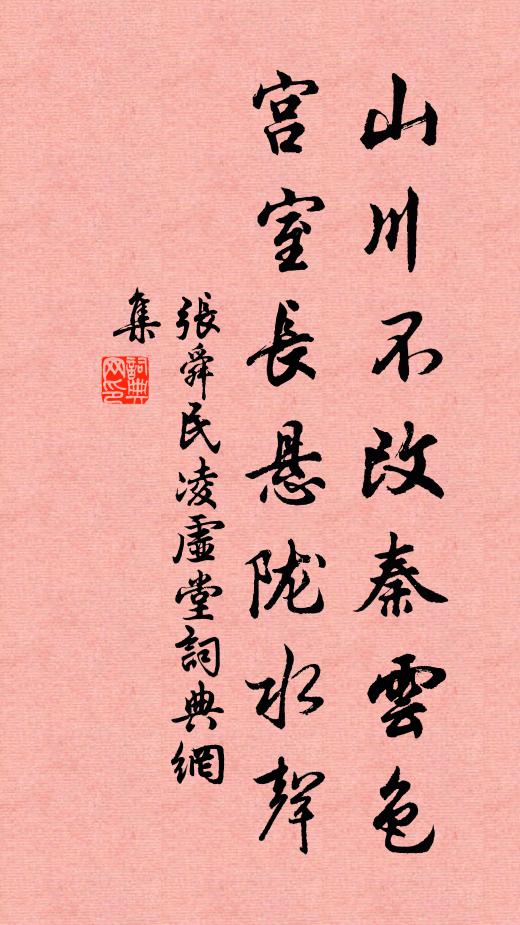 山川不改秦雲色
宫室長悬陇水聲
張舜民凌虛堂詞典網
集
詞典
网印